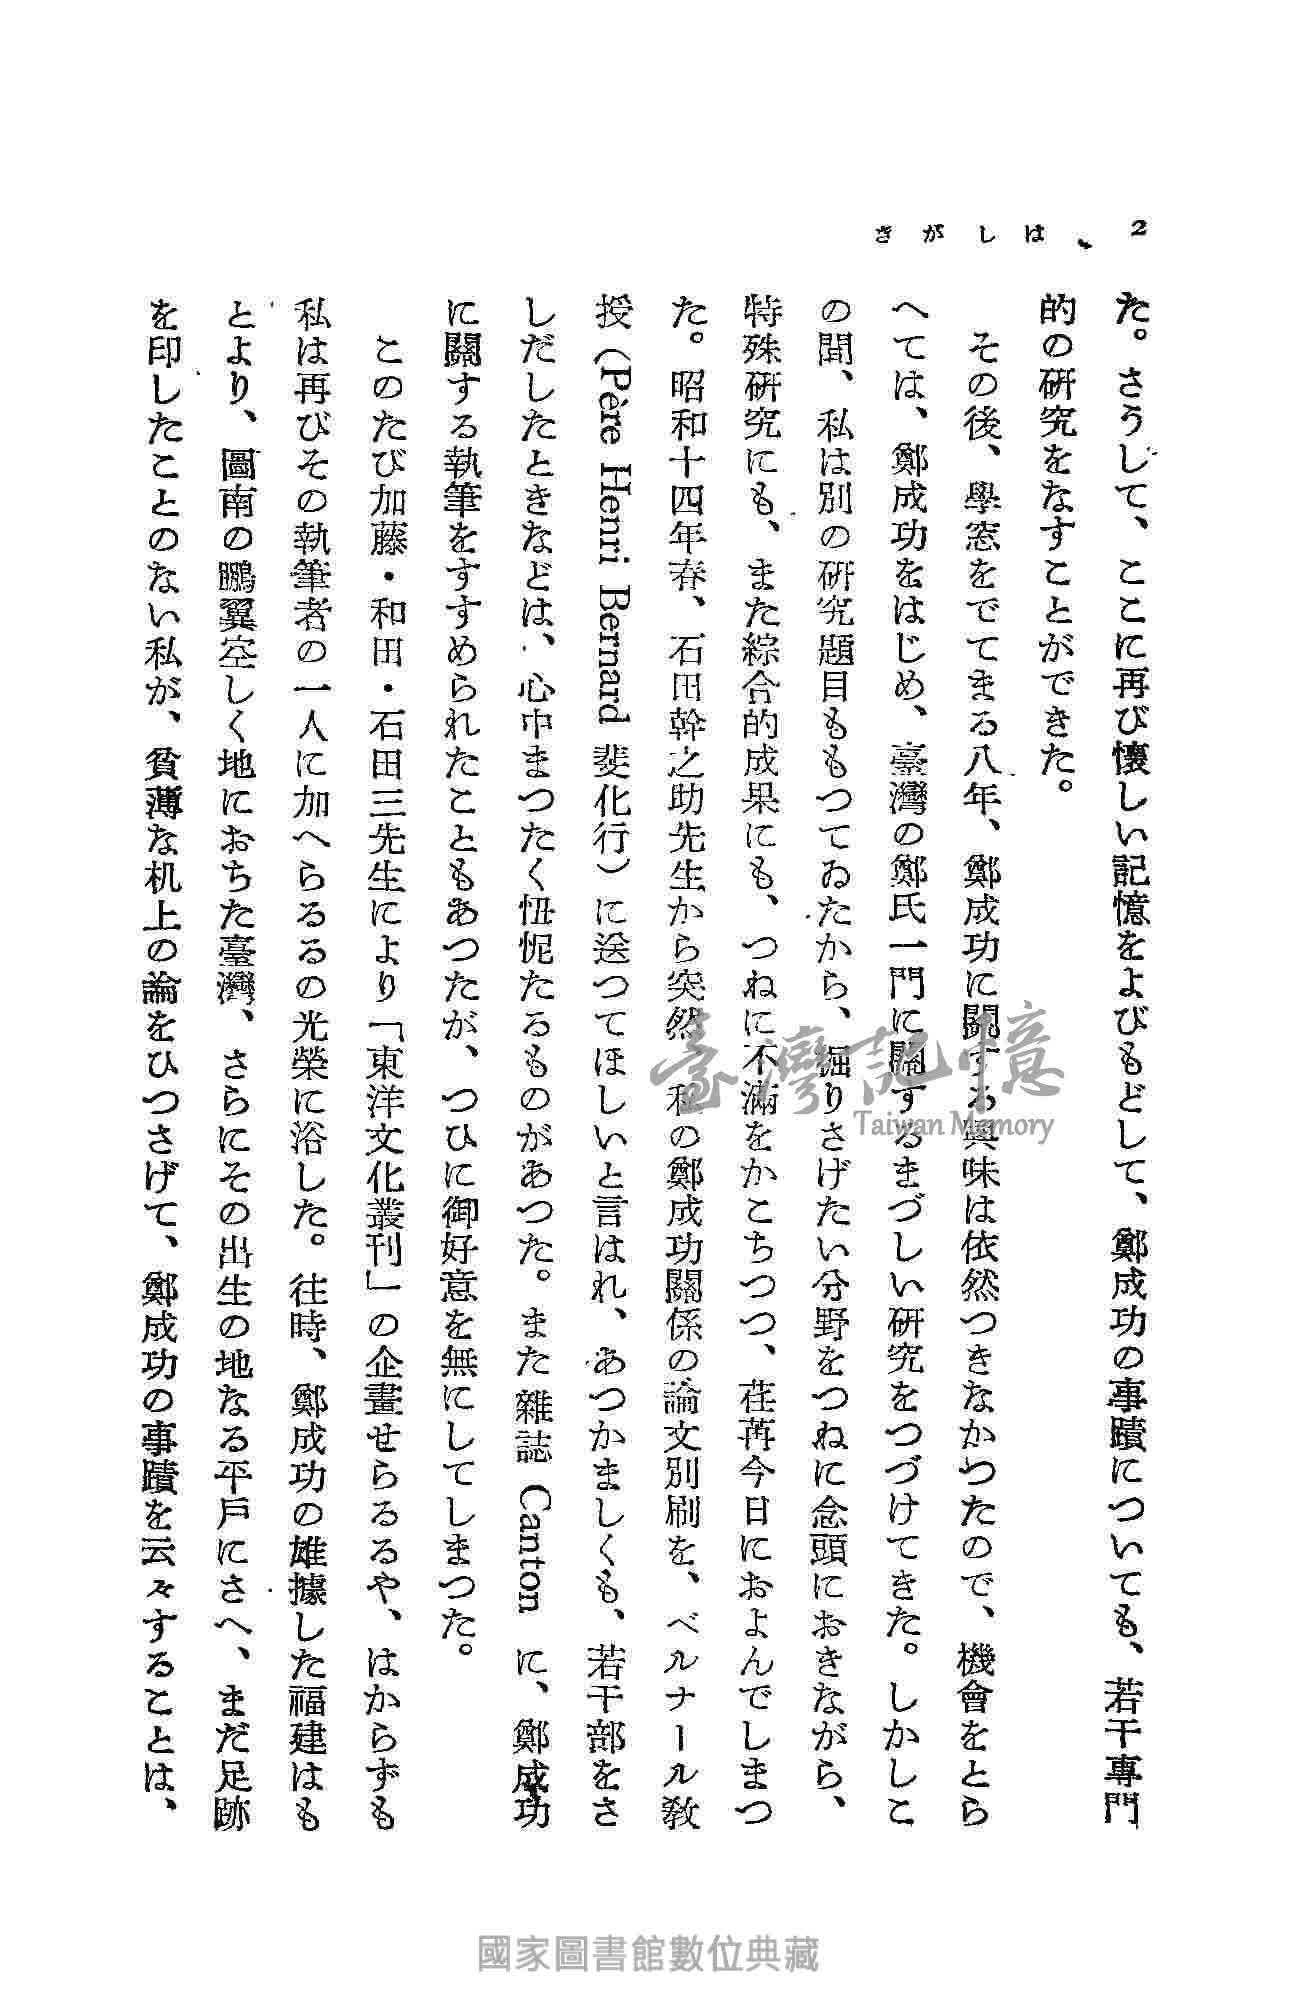 2
はしがき
た。さうして、ここに再び懷しい記憶をよびもどして、鄭成功の事蹟についても、若干專門
的の硏究をなすことができた。
その後、學窓をでてまる八年、鄭成功に關する興味は依然つきなかつたので、機會をとら
へては、鄭成功をはじめ、臺灣の鄭氏一門に關するまづしい硏究をつづけてきた。しかしこ
の間、私は別の硏究題目ももつてゐたから、掘りさげたい分野をつねに念頭におきながら、
特殊硏究にも、また綜合的成果にも、つねに不滿をかこちつつ、荏苒今日におよんでしまつ
た。昭和十四年春、石田幹之助先生から突然、私の鄭成功關係の論文別刷を、ベルナール敎
授（Père Henri Bernard 斐化行）に送つてほしいと言はれ、あつかましくも、若干部をさ
しだしたときなどは、心中まつたく忸怩たるものがあつた。また雜誌 Canton に、鄭成功
に關する執筆をすすめられたこともあつたが、つひに御好意を無にしてしまつた。
このたび加藤・和田・石田三先生により「東洋文化叢刊」の企畫せらるるや、はからずも
私は再びその執筆者の一人に加へらるるの光榮に浴した。往時、鄭成功の雄據した福建はも
とより、圖南の鵬翼空しく地におちた臺灣、さらにその出生の地なる平戶にさへ、まだ足跡
を印したことのない私が、貧薄な机上の論をひつさげて、鄭成功の事蹟を云々することは、
臺灣記憶
Taiwan Memory
國家圖書館數位典藏